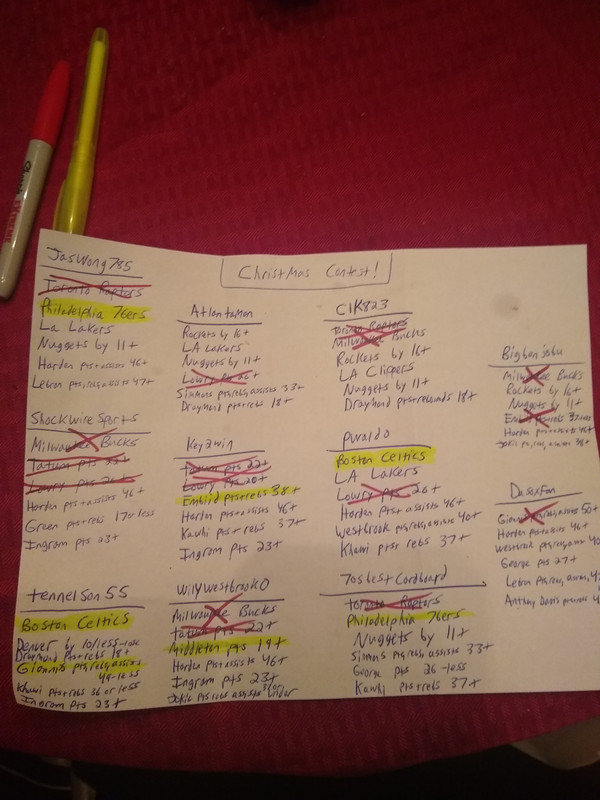 Sharpie
Christmas Contest!
JasWong785
Toronto Raptors
Philadelphia 76ers
La Lakers
Nuggets by 11+
Harden pts+assists 46+
Lebron pts,rebs,assists 47+
Shockwire Sports
Milwaukee Bucks
Tatum pts 22+
Lowry pts 20+
Harden pts+assists 46+
Green pts+rebs 17 or less
Ingram pts 23+
tennelson55
Boston Celtics
Denver by 10/less-lose
Draymond pts+rebs 18+
Giannis pts,reb,assists
49-less
Khawi pts+rebs 36 or less
Ingram pts 23+
Atlantaman
Rockets by 16+
LA Lakers
Nuggets by 11+
Lowry pts 20+
Simmons pts,rebs,assists 33+
Draymond pts+reb 18+
Key2win
Tatum pts 22+
Lowry pts 20+
Embiid pts+rebs 38+
Harden pts+assists 46+
Kawhi pts+rebs 37+
Ingram pts 23+
WillyWestbrook0
Milwaukee Bucks
Tatum pts 22+
Middleton pts 19+
Harden pts+assists 46+
Ingram pts 23+
Jokic pts rebs assists under
C1K823
Toronto Raptors
Milwaukee Bucks
Rockets by 16+
LA Clippers
Nuggets by 11+
Draymond pts+rebounds 18+
puraldo
Boston Celtics
LA Lakers
Lowry pts 20+
Harden pts+assists 46+
Westbrook pts,rebs,assists 40+
Khawi pts+ rebs 37+
7osbest Cardboard
Toronto Raptors
Philadelphia 76ers
Nuggets by 11+
Simmons pts,rebs,assists 33+
George pts 26-less
Kawhi pts+rebs 37+
Bigben
Milwaukee Bucks
Rockets by 16+
Nuggets by 11+
Embiid pts+rebs 37
Harden pts+assists 46+
Jokic pts,reb,assists
Da sox Fan
Giannis pts,rebs,assists 50+
Harden pts+assists 46+
Westbrook pts,rebs,assists
George pts 27+
Lebron pts,reb,assists
Anthony Davis pts+rebs